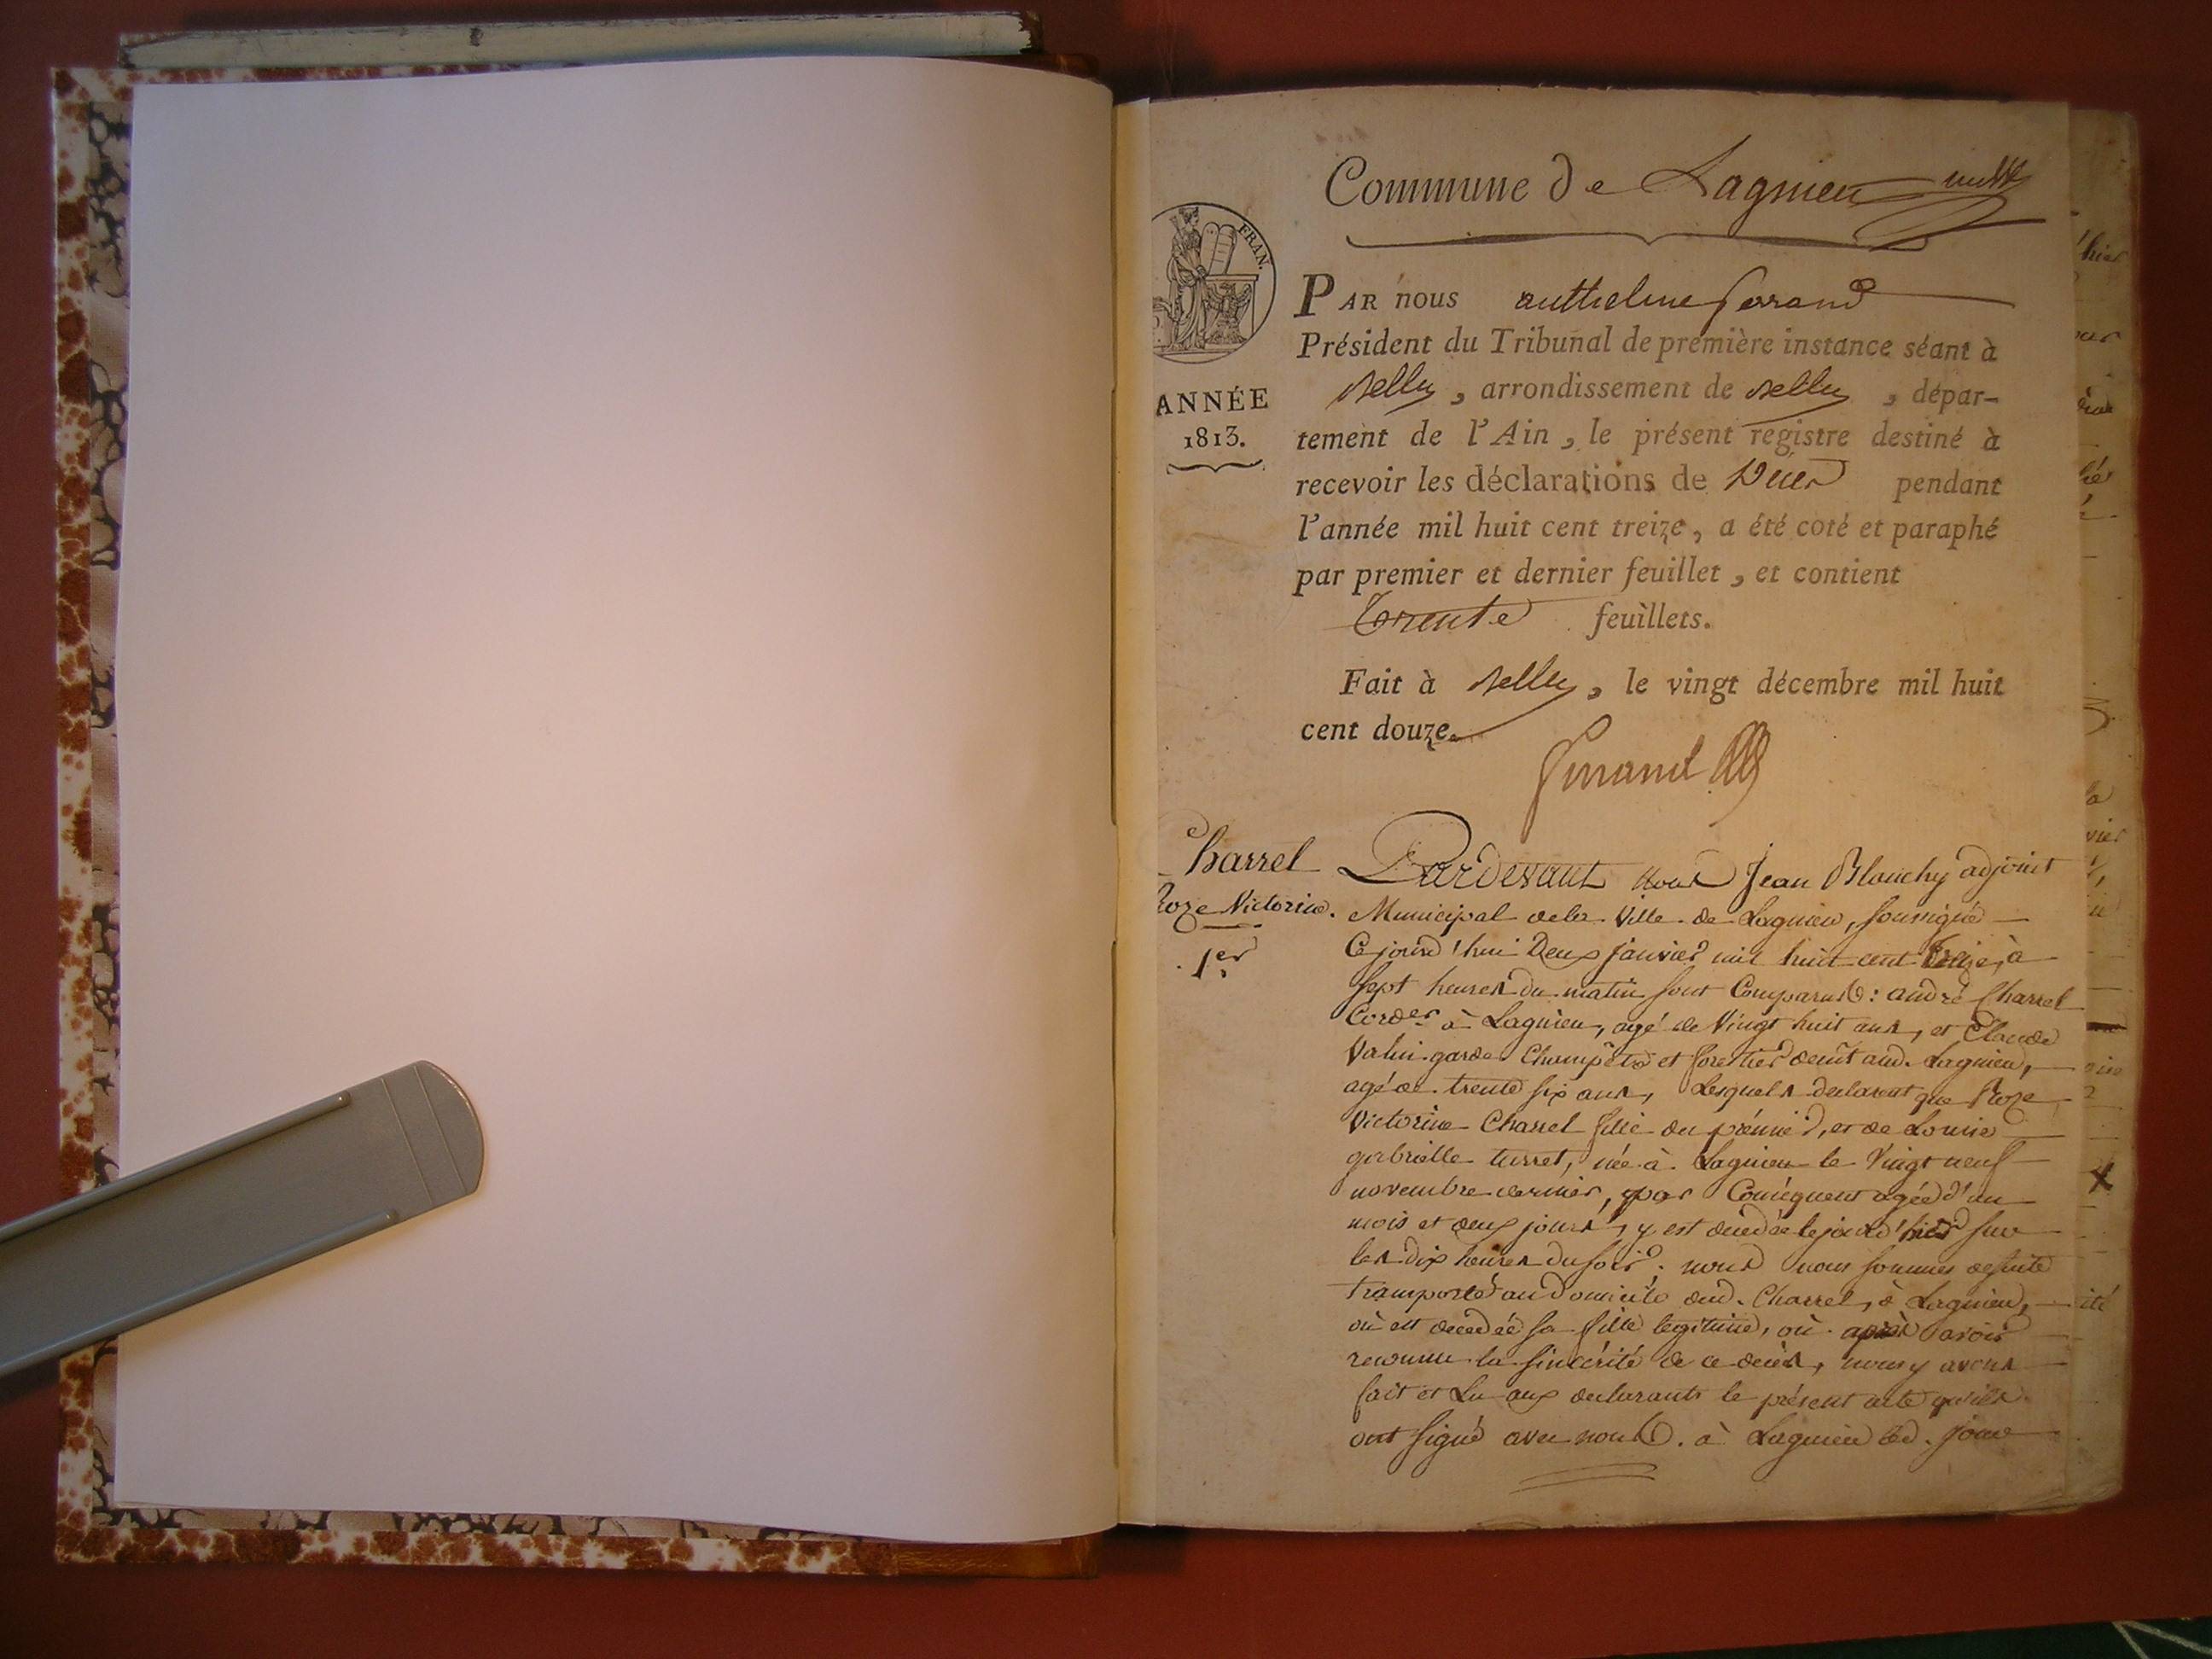 Commune de Lagnieu
FRAN.
PAR nous anthelme ferrand
Président du Tribunal de première instance séant à
Belley, arrondissement de Belley, dépar-
ANNÉE
1813.
tement de l'Ain, le présent registre destiné à
recevoir les déclarations de Décès pendant
l'année mil huit cent treize, a été coté et paraphé
par premier et dernier feuillet, et contient
Trente feuillets.
Fait à Belley, le vingt décembre mil huit
cent douze.
ferrand
Charrel
Roze Victorine.
1er
Pardevant nous Jean Blanchy adjoint
Municipal de la Ville de Lagnieu, soussigné
Cejourd'hui Deux janvier mil huit cent treize, à
sept heures du matin sont Comparus : andré Charrel
Corder à Lagnieu, agé de Vingt huit ans, et Claude
garde Champêtre et forestier demt aud. Lagnieu,
agé de trente six ans, Lesquels declarent que Roze
Victorine Charrel fille du prémier, et de Louise
gabrielle turret, née à Lagnieu le Vingt neuf
novembre dernier, par Conséquent agée d'un
mois et deux jours, y est décédée le jour d'hier sur
les dix heures du soir ; nous nous sommes desuite
transporté au Domicile dud. Charrel, à Lagnieu,
où est décédée sa fille legitime, où après avoir
reconnu la sincérité de ce décès, nous y avons
fait et Lu aux declarants le présent acte qu'ils
ont signé avec nous. à Lagnieu led. jour